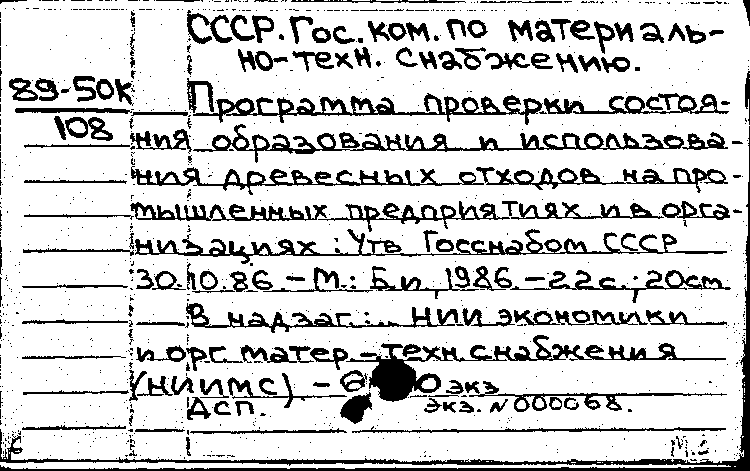 СССР. Гос. ком. по материаль-
но-техн. снабжению.
89-50К
108
Программа проверки состоя-
ния образования и использова-
ния древесных отходов на про-
мышленных предприятиях и в орга-
низациях: Утв Госснабом СССР
30.10.86. - М.: Б.и, 1986. - 22с.; 20см.
В надзаг.:.. НИИ экономики
и орг. матер.-техн. снабжения
(НИИМС). - 0 экз
ДСП. экз. №000068.